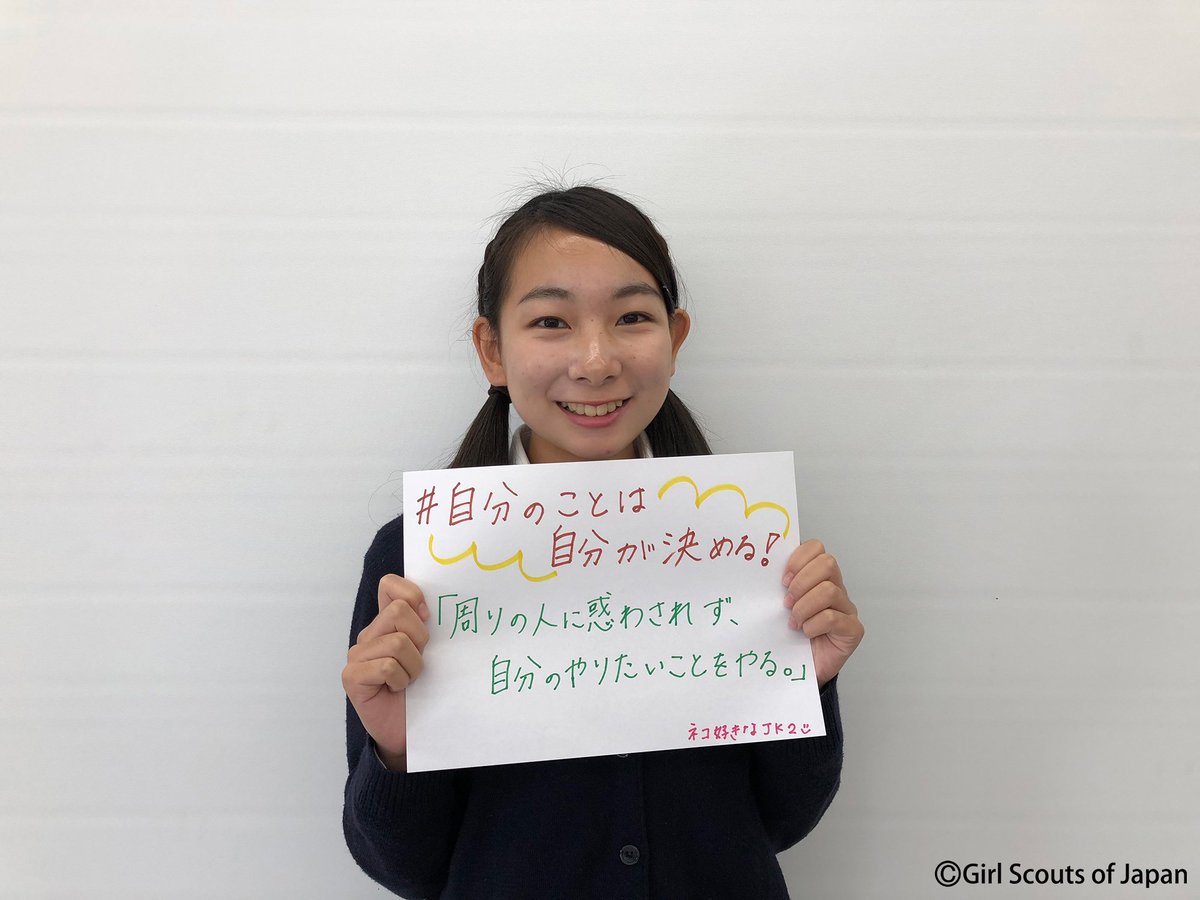 #自分のことは
自分が決める!
「周りの人に惑わされず、
自分のやりたいことをやる。」
ネコ好きなJK2
©Girl Scouts of Japan